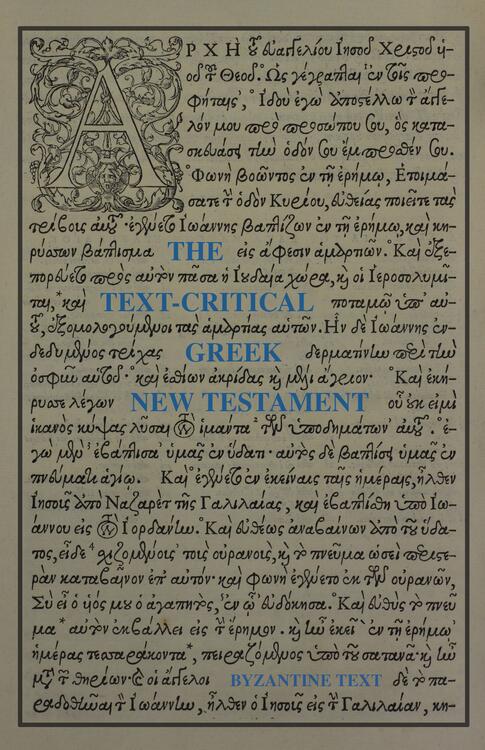 ΑΡΧΗ τοῦ Εὐαγγελίου Ἰησοῦ Χριστοῦ ὑι-
οῦ τοῦ Θεοῦ. Ὡς γέγραπται ἐν τοῖς προ-
φήταις, Ἰδοὺ ἐγὼ ἀποστέλλω τὸν ἄγγε-
λόν μου πρὸ προσώπου σου, ὃς κατα-
σκευάσει τὴν ὁδόν σου ἔμπροσθέν σου.
Φωνὴ βοῶντος ἐν τῇ ἐρήμῳ, Ἑτοιμά-
σατε τὴν ὁδὸν Κυρίου, εὐθείας ποιεῖτε τὰς
τρίβους αὐτοῦ. ἐγένετο Ἰωάννης βαπτίζων ἐν τῇ ἐρήμῳ, καὶ κη-
ρύσσων βάπτισμα THE εἰς ἄφεσιν ἁμαρτιῶν. Καὶ ἐξε-
πορεύετο πρὸς αὐτὸν πᾶσα ἡ Ἰουδαία χώρα, καὶ οἱ Ἱεροσολυμῖ-
ται, καὶ TEXT-CRITICAL ποταμῷ ὑπ' αὐ-
τοῦ, ἐξομολογούμενοι τὰς ἁμαρτίας αὐτῶν. Ἦν δὲ Ἰωάννης ἐν-
δεδυμένος τρίχας GREEK δερματίνην περὶ τὴν
ὀσφὺν αὐτοῦ· καὶ ἐσθίων ἀκρίδας καὶ μέλι ἄγριον· Καὶ ἐκή-
ρυσσε λέγων NEW TESTAMENT οὗ οὐκ εἰμὶ
ἱκανὸς κύψας λῦσαι τὸν ἱμάντα τῶν ὑποδημάτων αὐτοῦ. ἐ-
γὼ μὲν ἐβάπτισα ὑμᾶς ἐν ὕδατι· αὐτὸς δὲ βαπτίσει ὑμᾶς ἐν
πνεύματι ἁγίῳ. Καὶ ἐγένετο ἐν ἐκείναις ταῖς ἡμέραις, ἦλθεν
Ἰησοῦς ἀπὸ Ναζαρὲτ τῆς Γαλιλαίας, καὶ ἐβαπτίσθη ὑπὸ Ἰω-
άννου εἰς τὸν Ἰορδάνην. Καὶ εὐθέως ἀναβαίνων ἀπὸ τοῦ ὕδα-
τος, εἶδε σχιζομένους τοὺς οὐρανοὺς, καὶ τὸ πνεῦμα ὡσεὶ περιστε-
ρὰν καταβαῖνον ἐπ' αὐτόν· καὶ φωνὴ ἐγένετο ἐκ τῶν οὐρανῶν,
Σὺ εἶ ὁ υἱός μου ὁ ἀγαπητὸς, ἐν ᾧ εὐδόκησα. Καὶ εὐθὺς τὸ πνεῦ
μα αὐτὸν ἐκβάλλει εἰς τὴν ἔρημον. καὶ ἦν ἐκεῖ ἐν τῇ ἐρήμῳ
ἡμέρας τεσσαράκοντα, πειραζόμενος ὑπὸ τοῦ σατανᾶ· καὶ ἦν
μετὰ τῶν θηρίων· καὶ οἱ ἄγγελοι BYZANTINE TEXT δὲ τὸ πα-
ραδοθῆναι τὸν Ἰωάννην, ἦλθεν ὁ Ἰησοῦς εἰς τὴν Γαλιλαίαν, κη-